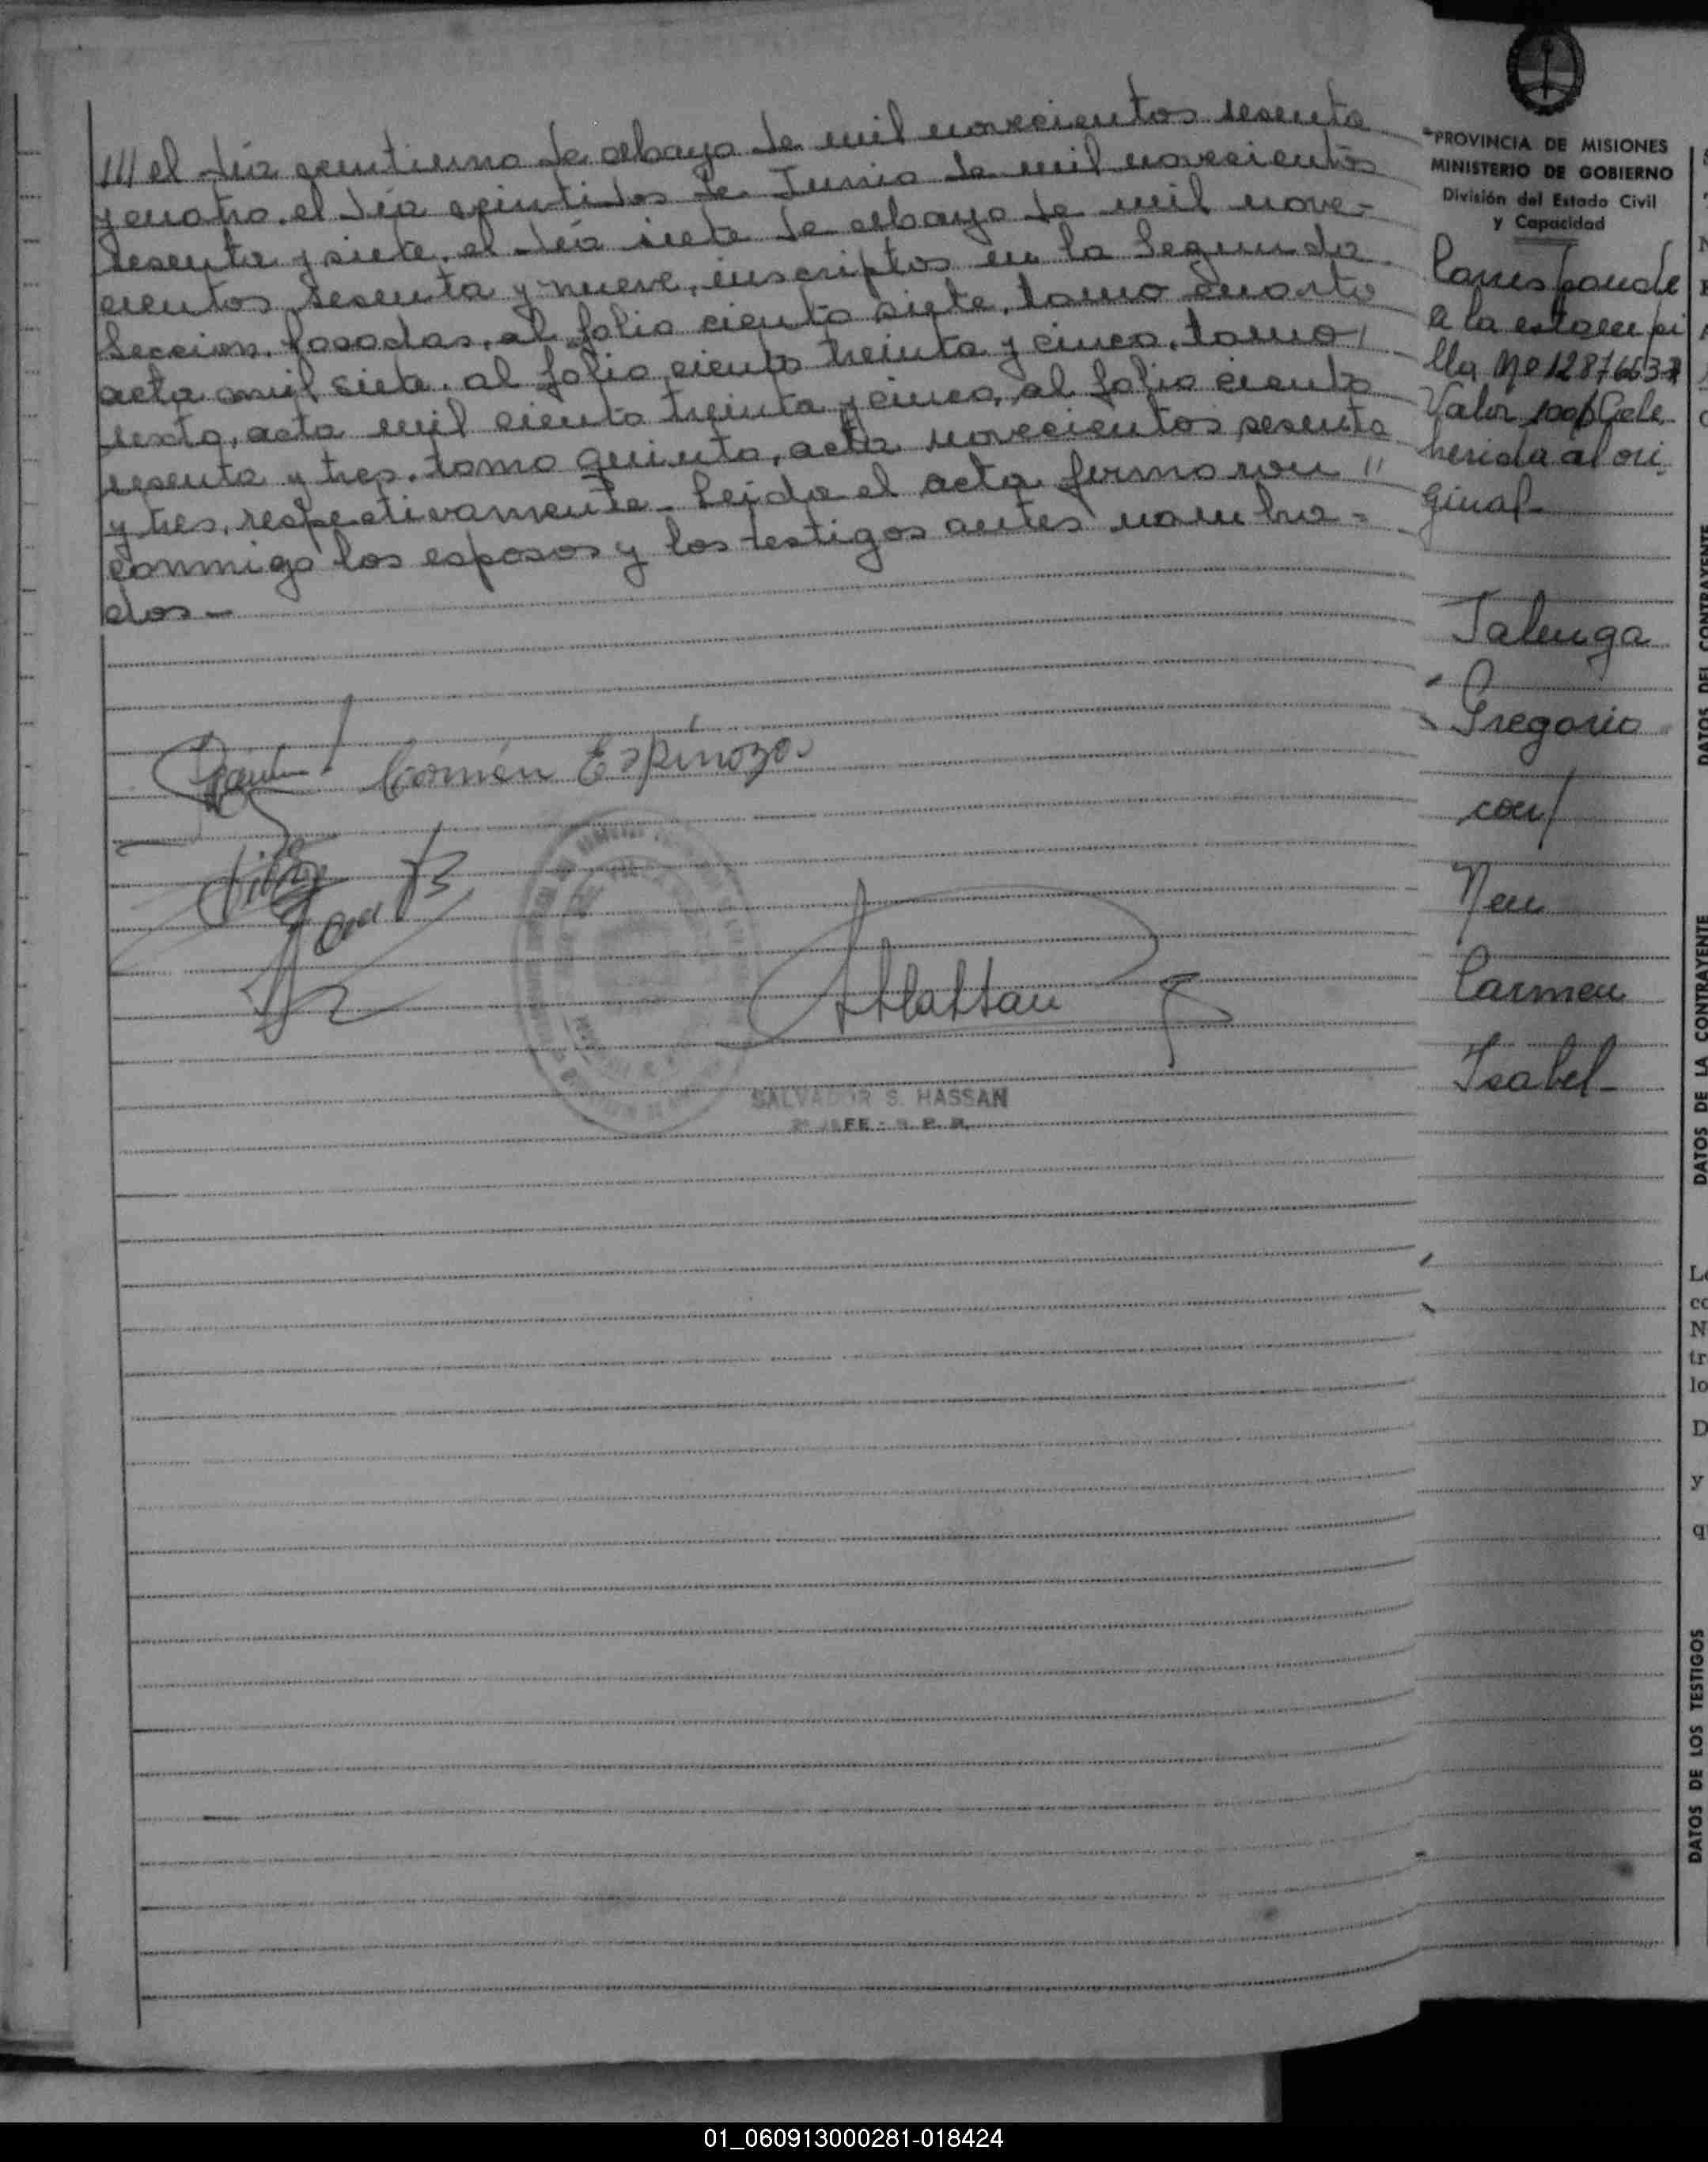 /// el día veintiuno de Mayo de mil novecientos sesenta
y cuatro, el día veintidos de Junio de mil novecientos
sesenta y siete, el día siete de Mayo de mil nove-
cientos sesenta y nueve, inscriptos en la Segunda
Sección, Posadas, al folio ciento siete, tomo cuarto
acta mil siete, al folio ciento treinta y cinco, tomo /
sexto, acta mil ciento treinta y cinco, al folio ciento
sesenta y tres, tomo quinto, acta novecientos sesenta
y tres, respectivamente - Leida el acta firmaron //
conmigo los esposos y los testigos antes nombra-
dos -
Carmén Espínoza
SALVADOR S. HASSAN
JEFE - R. P. P.
PROVINCIA DE MISIONES
MINISTERIO DE GOBIERNO
División del Estado Civil
y Capacidad
Corresponde
a la estampi
lla Nº
Valor
herida al ori
ginal-
Talenga
Gregorio
con/
Neu
Carmen
Isabel-
DATOS DEL CONTRAYENTE
DATOS DE LA CONTRAYENTE
DATOS DE LOS TESTIGOS
01_060913000281-018424